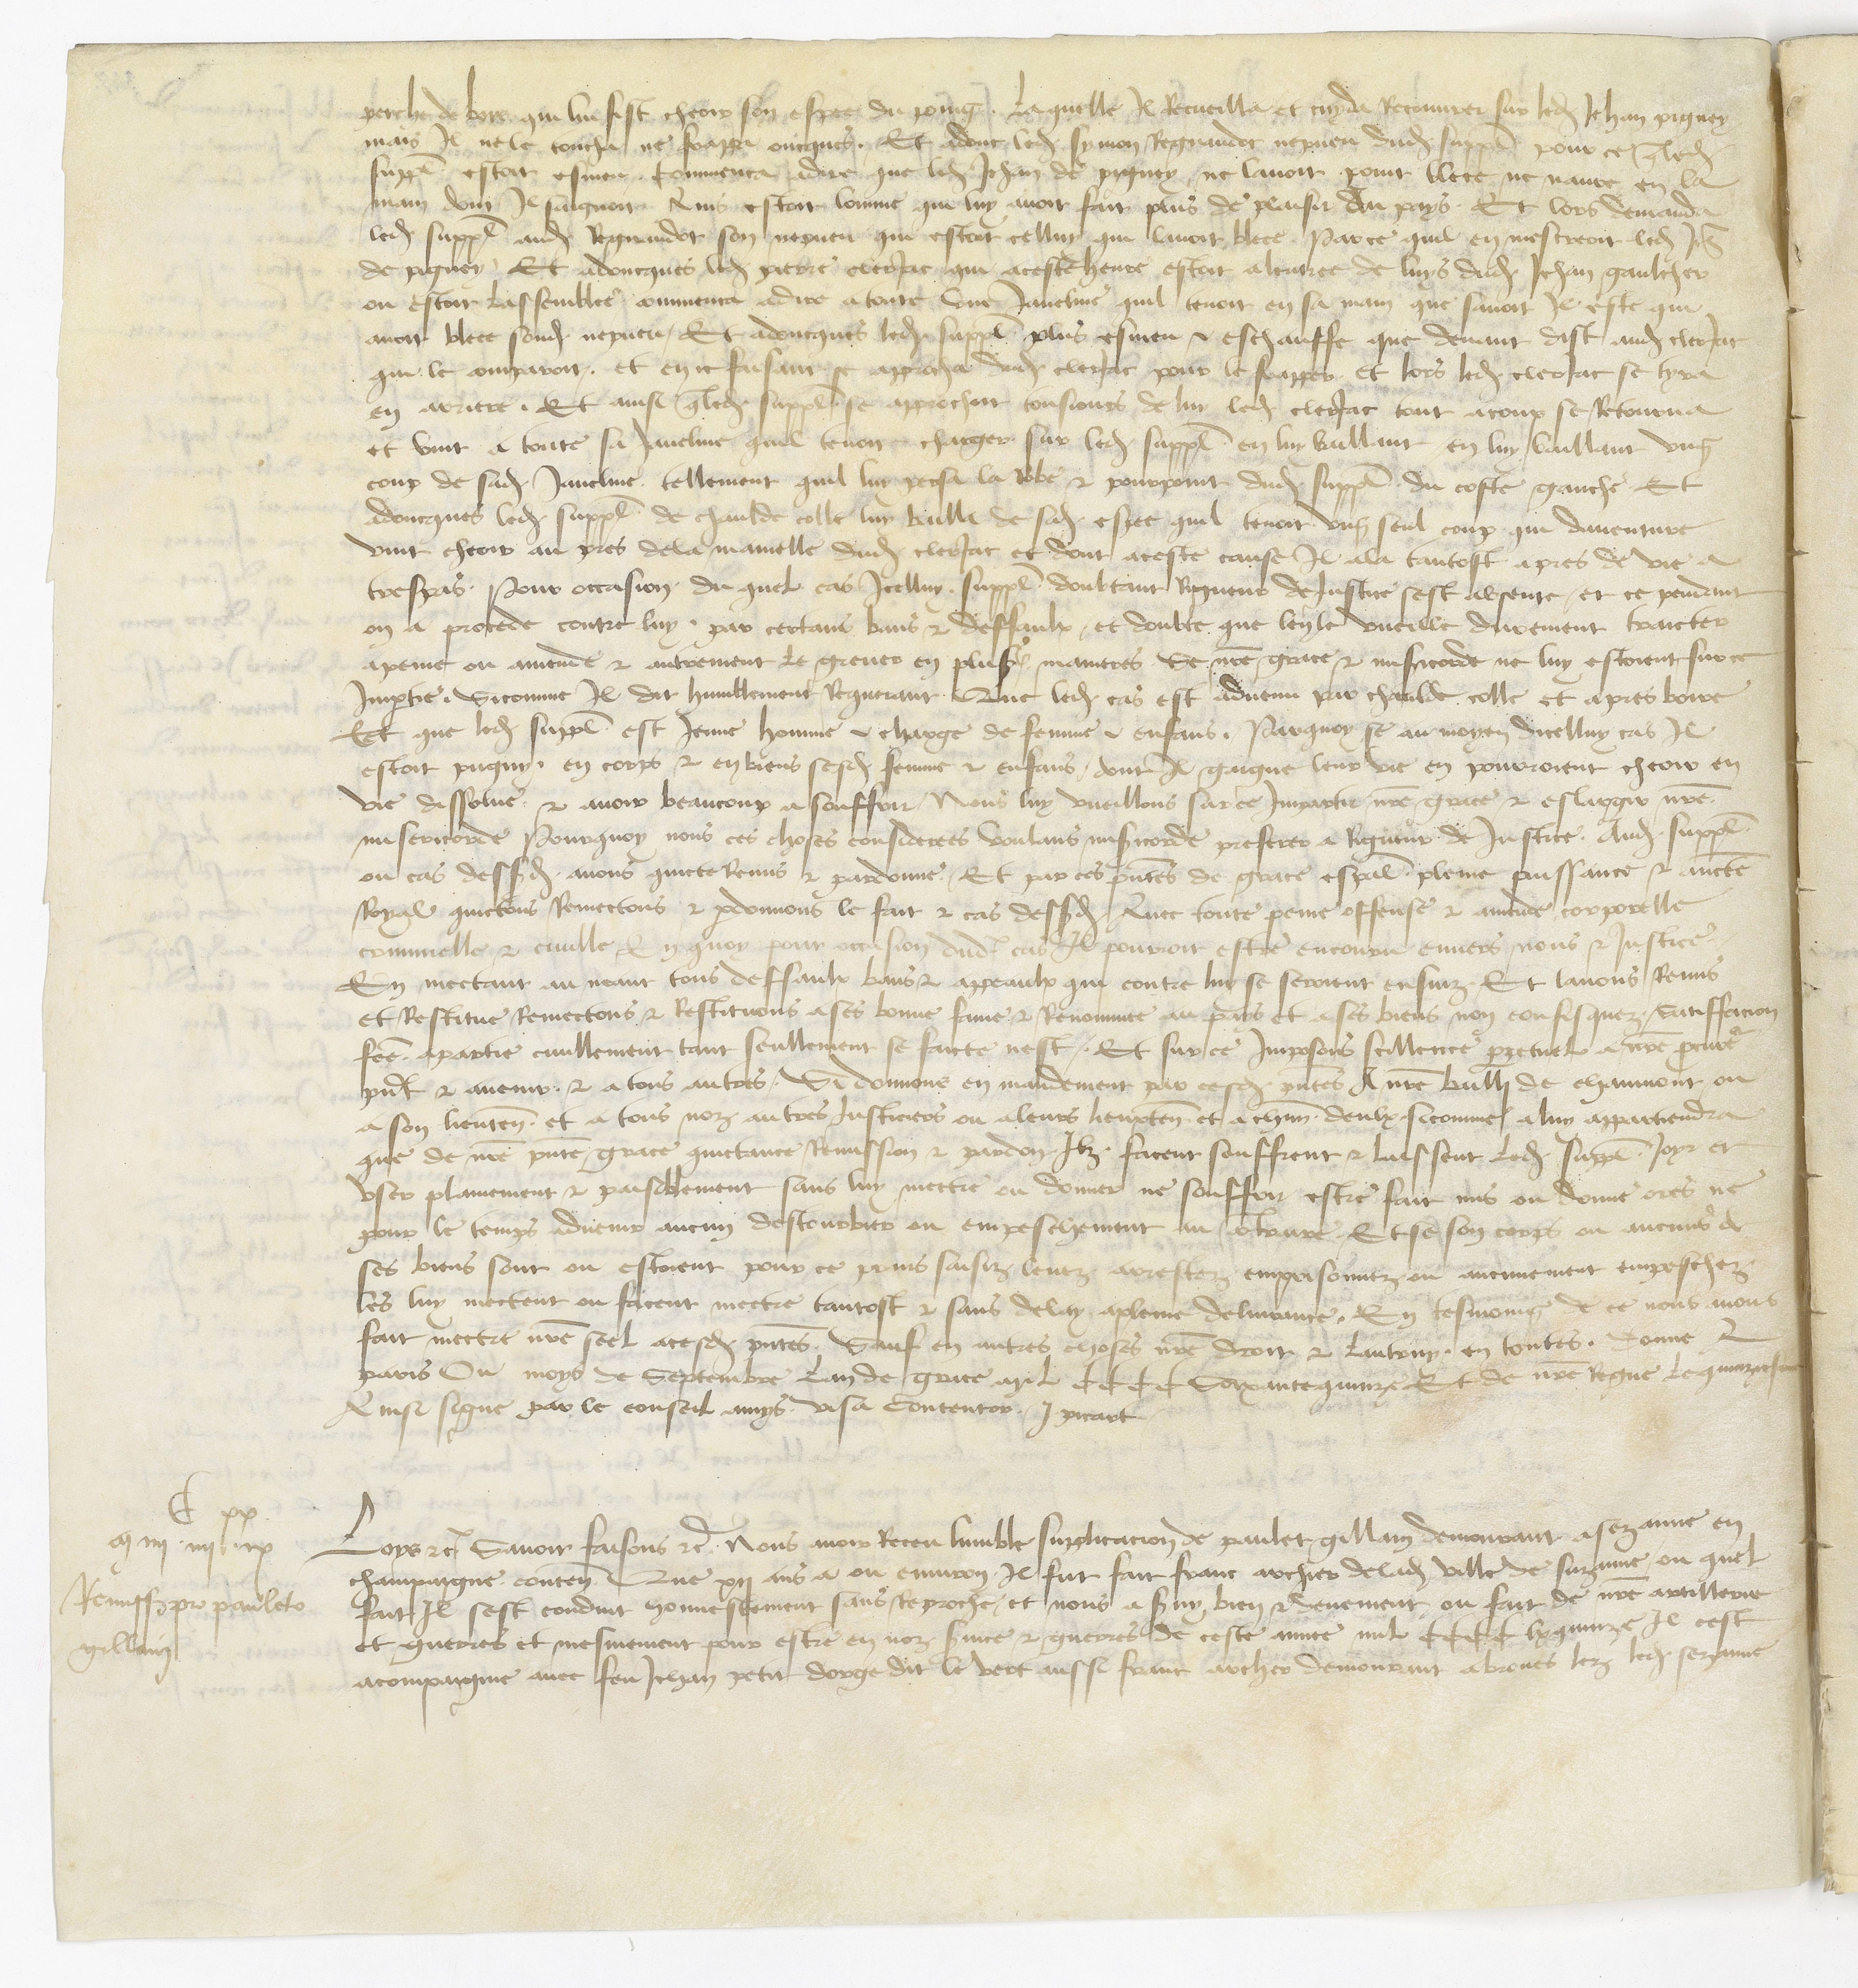 perche de boys qui lui fist cheoir son espee du poing. Laquelle il Recueilla et cuyda Recouvrer sur led Jehan pigney
mais Il ne le toucha ne frappa oncques. Et adonc led symon Regnaudot nepueu dud suppl pour ce q led
suppl estoit esmeu commenca a dire que led Jehan de pigney ne lavoit point blece ne navre en la
main dont Il saignoit Ains estoit lomme qui luy avoit fait plus de plaisir du pays. Et lors demanda
led suppl aud Regnaudot son nepueu qui estoit celluy qui lavoit blece. Par ce quil en mescreoit led Jeh
de pigney Et adoncques led pierre clerjac qui a ceste heure estoit a lentree de luys dud Jehan gaulcher
ou estoit lassemblee commenca a dire a toute une Javeline quil tenoit en sa main que savoit Il este qui
avoit blece sond nepueu Et adoncques led suppl plus esmeu & eschauffe que devant dist aud clerjac
qui le comparoit. et en ce faisant se approcha dud clerjac pour le frapper et lors led clerjac se tyra
en arriere. Et ainsi q led suppl se approchoit tousiours de luy led clerjac tout acoup se Retourna
et vint a toute sa Javeline quil tenoit charger sur led suppl en luy baillant en luy baillant ung
coup de sad Javeline tellement quil luy persa la robe & pourpoint dud suppl du coste gauche Et
adoncques led suppl de chaulde colle luy bailla de sad espee quil tenoit ung seul coup qui davanture
vint cheoir au pres de la mamelle dud clerjac et dont a ceste cause Il ala tantost apres de vie a
trespas. Pour occasion du quel cas Icelluy suppl doubtant Rigueur de Justice sest absente, et ce pendant
on a procede contre luy par certains bans & deffaulx, et doubte que len le vueille durement traicter
a peine ou amende & autrement le grever en plus manieres Se nre grace & misericorde ne luy estoient sur ce
Imptie. Sicomme Il dit humblement Requerant Que led cas est advenu par chaulde colle et apres boire
Et que led suppl est Jeune homme & charge de femme & enfans. Parquoy se au moyen dicelluy cas Il
estoit pugny en corps & en biens sesd femme & enfans, dont Il gaigne leur vie en pourroient cheoir en
vie dissolue & avoir beaucoup a souffrir, Nous luy vueillons sur ce Impartir nre grace & eslargir nre
misericorde Pourquoy nous ces choses considerees voulans misericorde preferer a Rigueur de Justice. Aud suppl
ou cas dessusd avons quicte Remis & pardonne. Et par ces pntes de grace espal pleine puissance & aucte
Royal quictons Remectons & pdonnons le fait & cas dessusd Avec toute peine offense & amende corporelle
criminelle & civille En quoy pour occasion dud cas Il pourroit estre encouru envers nous & Justice
En mectant au neant tous deffaulx bans & appeaulx qui contre luy se seroient ensuiz Et lavons Remis
et Restitue Remectons & Restituons a ses bonne fame & Renommee au pays et a ses biens non confisquez. Satiffacion
fce a partie civillement tant seullement se faicte nest. Et sur ce Imposons scillence ppetuel a nre pcur
pnt & avenir & a tous autres. Si donnons en mandement par cesd pntes A nre bailli de chaumont ou
a son lieuten et a tous noz autres Justiciers ou a leurs lieuxten et a chun deulx sicomme a luy appartiendra
que de nre pnte grace quictance Remission & pardon Ilz facent seuffrent & laissent led suppl Joyr et
user plainement & paisiblement sans luy mectre ou donner ne souffrir estre fait mis ou donne ores ne
pour le temps advenir aucun destourbier ou empeschement au contraire Et se son corps ou aucuns de
ses biens sont ou estoient pour ce prins saisiz levez arrestez emprisonnez ou aucunement empeschez
les luy mectent ou facent mectre tantost & sans delay a pleine delivrance. En tesmoing de ce nous avons
fait mectre nre seel a cesd pntes. Sauf en autres choses nre droit & lautruy en toutes. Donne A
paris Ou moys de Septembre Lan de grace mil CCCC Soixante quinze Et de nre Regne le quinziesme
Ainsi signe par le conseil amys. visa Contentor. J picart

C xx
M IIII IIII IX
Remissio pro pauleto
gillain
Loys &c Savoir faisons &c. Nous avoir Receu lumble supplicacion de paulet gillain demourant a sezanne en
champaigne conten Que xII ans a ou environ Il fut fait franc archier de lad ville de suzanne ou quel
fait Il sest conduit honnestement sans Reproche, et nous a suy bien & deuement ou fait de nre artillerie
et guerres et mesmement pour estre en noz svice & guerres de ceste annee mil CCCC lx quinze Il cest
acompaigne avec feu Jehan petit dorge dit le vert aussi franc archer demourant a broues lez led sezanne